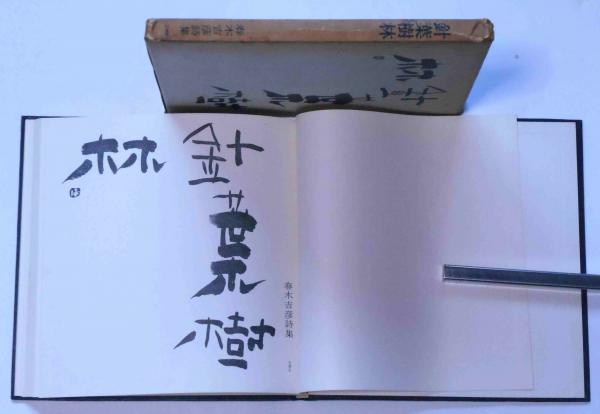 針葉樹林
春木吉彦詩集
針葉樹
林
針葉樹
林
春木吉彦詩集